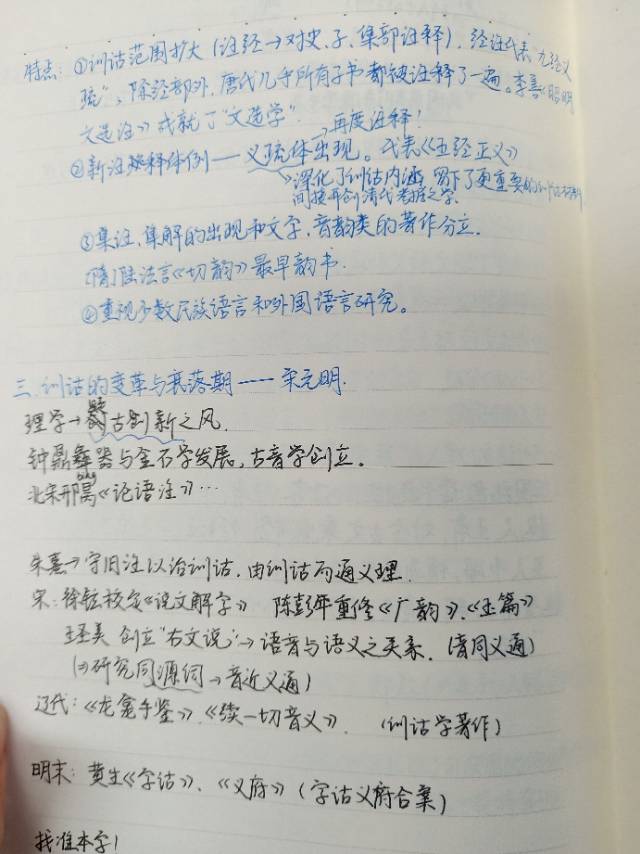 特点：①训诂范围扩大（注经→对史、子、集部注释），经注代表"九经义
疏"，除经部外，唐代几乎所有子书都被注释了一遍。李善《昭明
文选注》成就了"文选学"
再度注释！
②新注释体例——义疏体出现。代表《五经正义》
深化了训诂内涵，留下了更重要的
间接开创清代考据之学.
③集注、集解的出现和文字、音韵类的著作分立.
[隋]陆法言《切韵》最早韵书.
④重视少数民族语言和外国语言研究。
三、训诂的变革与衰落期——宋元明.
理学→古创新之风.
钟鼎彝器与金石学发展，古音学创立。
北宋邢昺《论语注》…
朱熹→守旧注以治训诂，由训诂而通义理.
宋：徐铉校定《说文解字》 陈彭年重修《广韵》、《玉篇》
王圣美 创立"右文说"→语音与语义之关系. (音同义通)
(→研究同源词→音近义通)
辽代：《龙龛手鉴》、《续一切音义》. (训诂学著作)
明末：黄生《字诂》、《义府》(字诂义府合案)
找准本字！